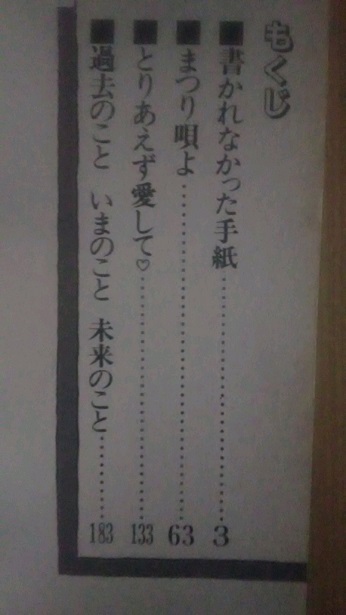 もくじ
■書かれなかった手紙…………3
■まつり唄よ…………63
■とりあえず愛して♡…………133
■過去のこと いまのこと 未来のこと…………183